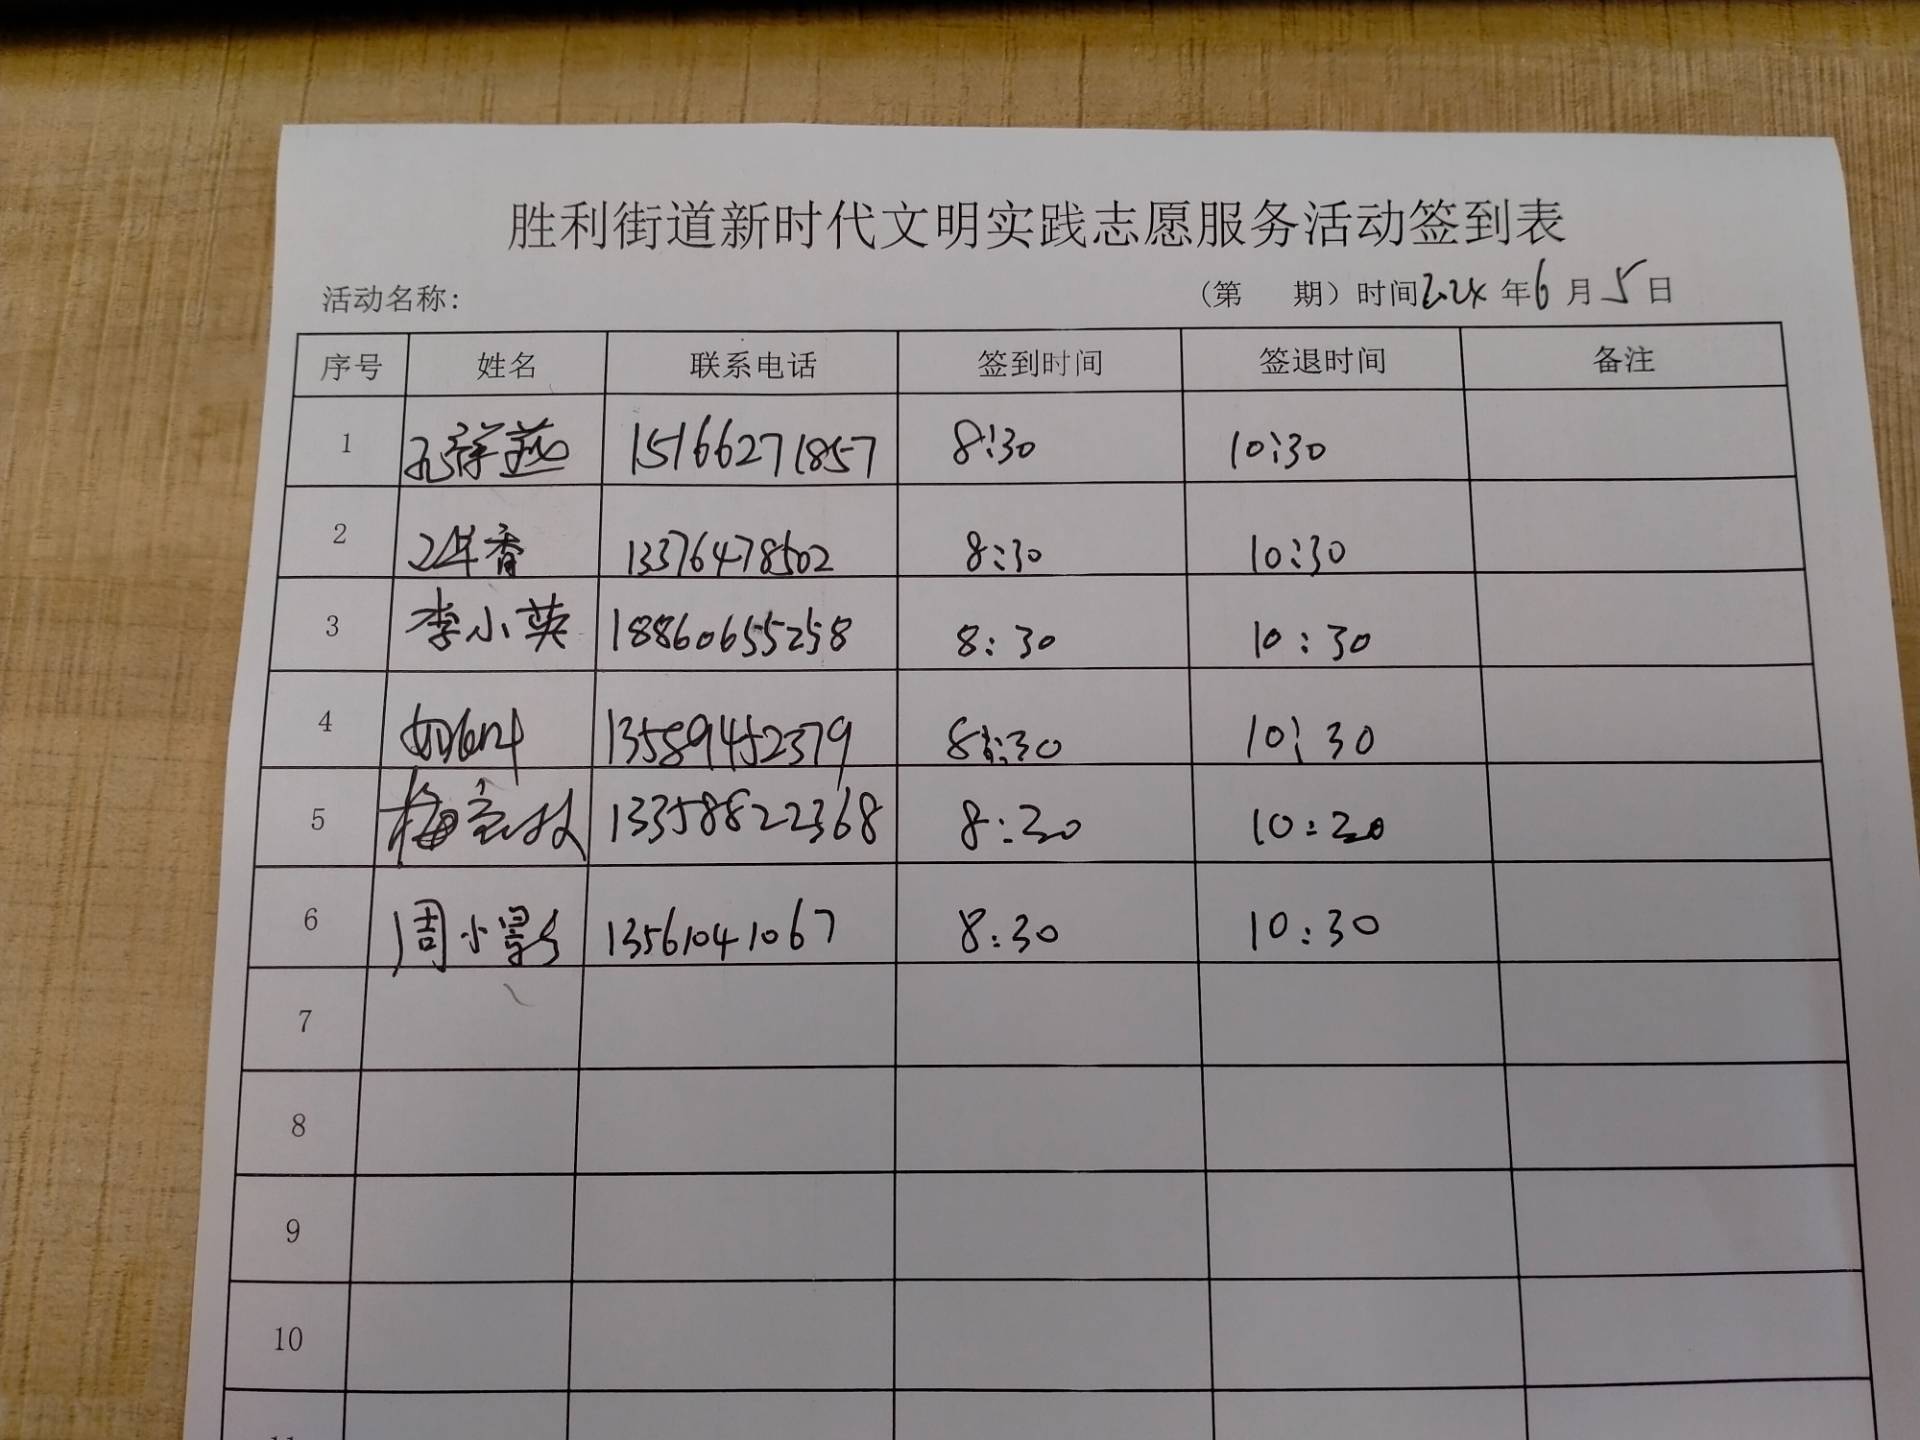 胜利街道新时代文明实践志愿服务活动签到表
活动名称: (第 期）时间2024年6月5日
序号 姓名 联系电话 签到时间 签退时间 备注
1 孔祥燕 15166271857 8:30 10:30
2 香 13376478502 8:30 10:30
3 李小英 18860655258 8:30 10:30
4 13589452379 8:30 10:30
5 梅 13358822368 8:30 10:30
6 周小影 13561041067 8:30 10:30
7
8
9
10